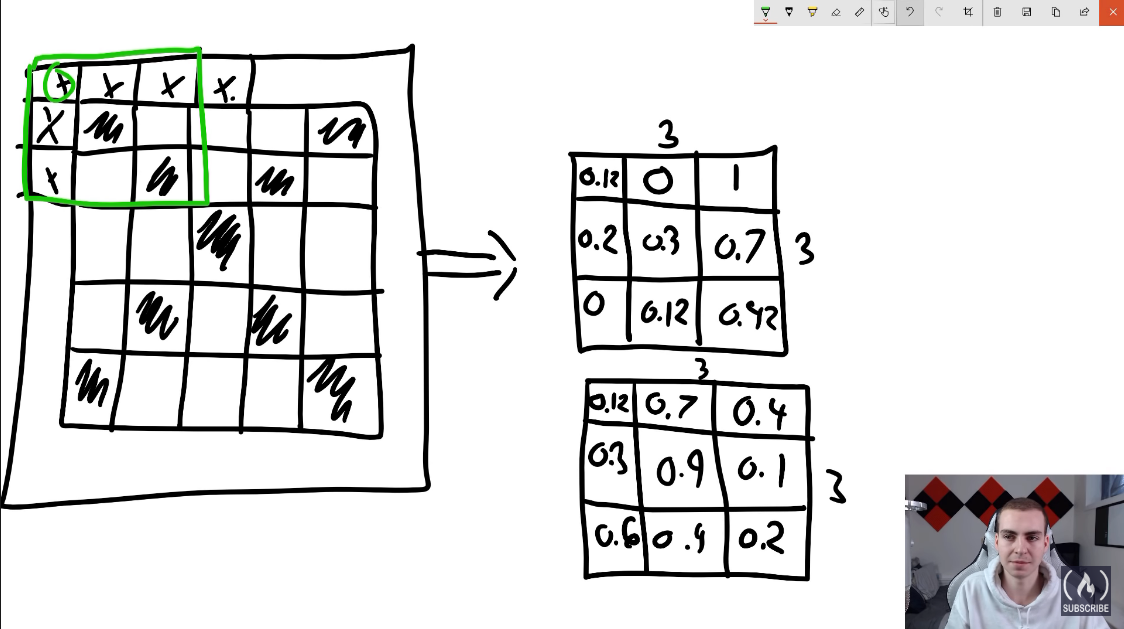 + X X X.
X
+
3
0.12 0 1
0.2 0.3 0.7 3
0 0.12 0.42
3
0.12 0.7 0.4
0.3 0.9 0.1 3
0.6 0.9 0.2
SUBSCRIBE